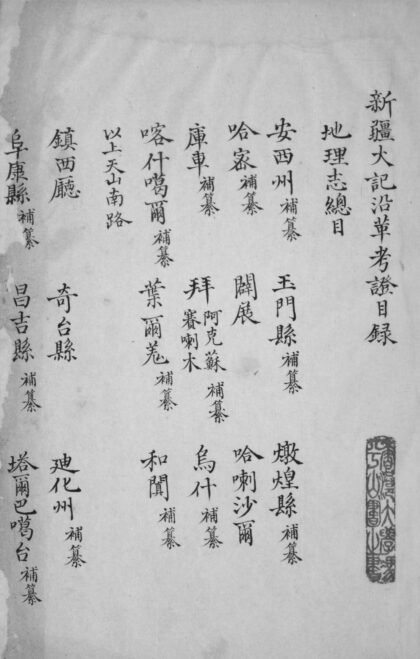 新疆大記沿革考證目録
地理志總目
安西州補纂 玉門縣補纂 燉煌縣補纂
哈宻補纂 闢展 哈喇沙爾
庫車補纂 拜阿克蘇賽喇木補纂 烏什補纂
喀什噶爾補纂 葉爾羌補纂 和闐補纂
以上天山南路
鎮西廳 奇台縣 廸化州補纂
阜康縣補纂 昌吉縣補纂 塔爾巴噶台補纂